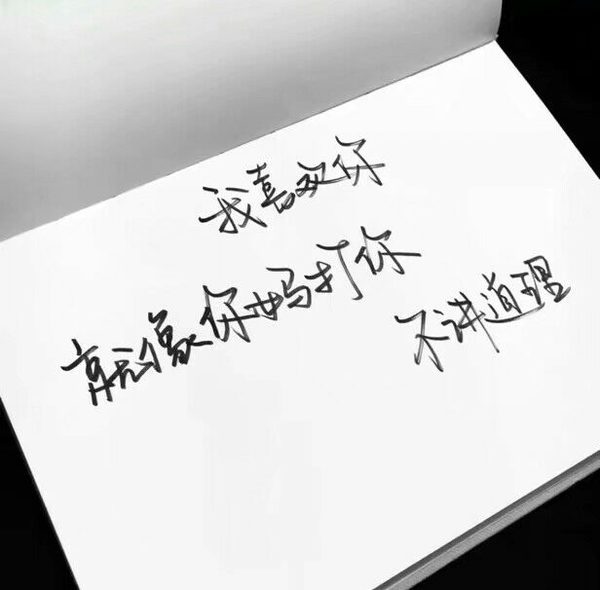 我喜欢你
就像你妈打你
不讲道理